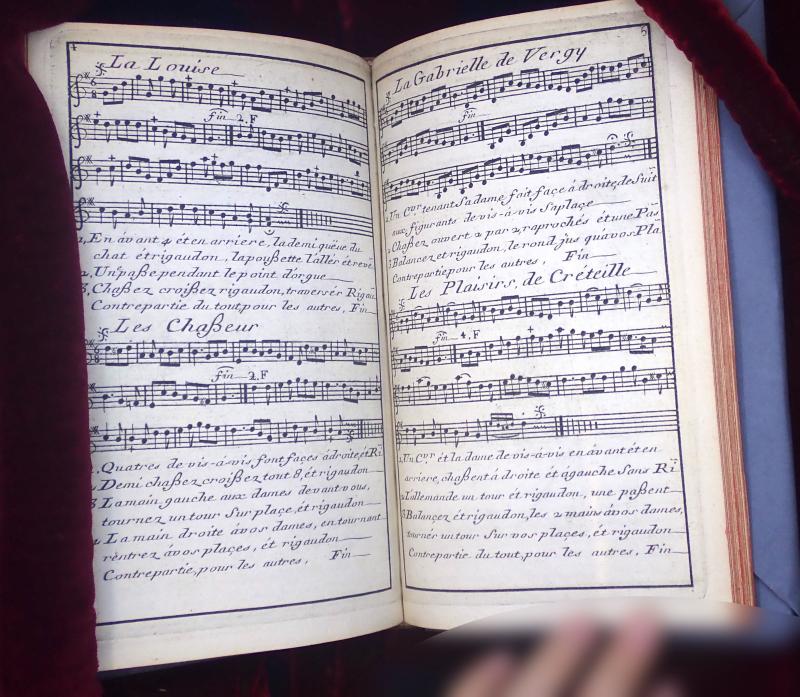 4
La Louise
Fin 2. F
1, En avant 4 ét en arriere, la demi queüe du
chat ét rigaudon, la poußette l'aller ét reve
2, Un paße pendant le point d'orgue
3, Chaßez croißez rigaudon, traversér Rigau
Contrepartie du tout, pour les autres, Fin
Les Chaßeur
Fin 2. F
1, Quatres de vis-à-vis font façes à droite, ét Ri
2, Demi chaßez croißez tout 8, ét rigaudon
3 La main gauche aux dames devant vous,
tournez un tour Sur plaçe, ét rigaudon
4 La main droite àvos dames, en tournant
rentrez àvos plaçes, ét rigaudon
Contrepartie, pour les autres, Fin
5
La Gabrielle de Vergy
Fin
1 Un Cvr. tenant Sa dame, fait façe à droite, de Suit
aux figurants de vis-à-vis Sa plaçe
2 Chaßez ouvert 2 par 2, raprochés ét une Pas
3 Balancez et rigaudon, le rond, jus qu'avos Pla
Contrepartie pour les autres, Fin
Les Plaisirs, de Créteille
Fin 4. F
1, Un Cvr. ét la dame de vis-à-vis en àvant ét en
arriere, chaßent à droite ét à gauche Sans Ri
2 L'allemande un tour ét rigaudon, une paßent
3 Balançez ét rigaudon, les 2 mains àvos dames,
tournér un tour Sur vos plaçes, ét rigaudon
Contrepartie du tout, pour les autres, Fin